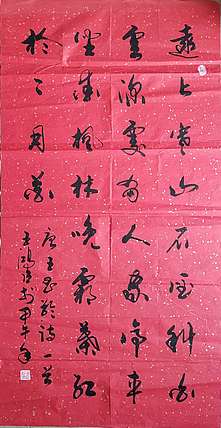 遠上寒山石徑斜白
雲深處有人家停車
坐愛楓林晚霜葉紅
於二月花
唐王昌龄诗一首
甲午年